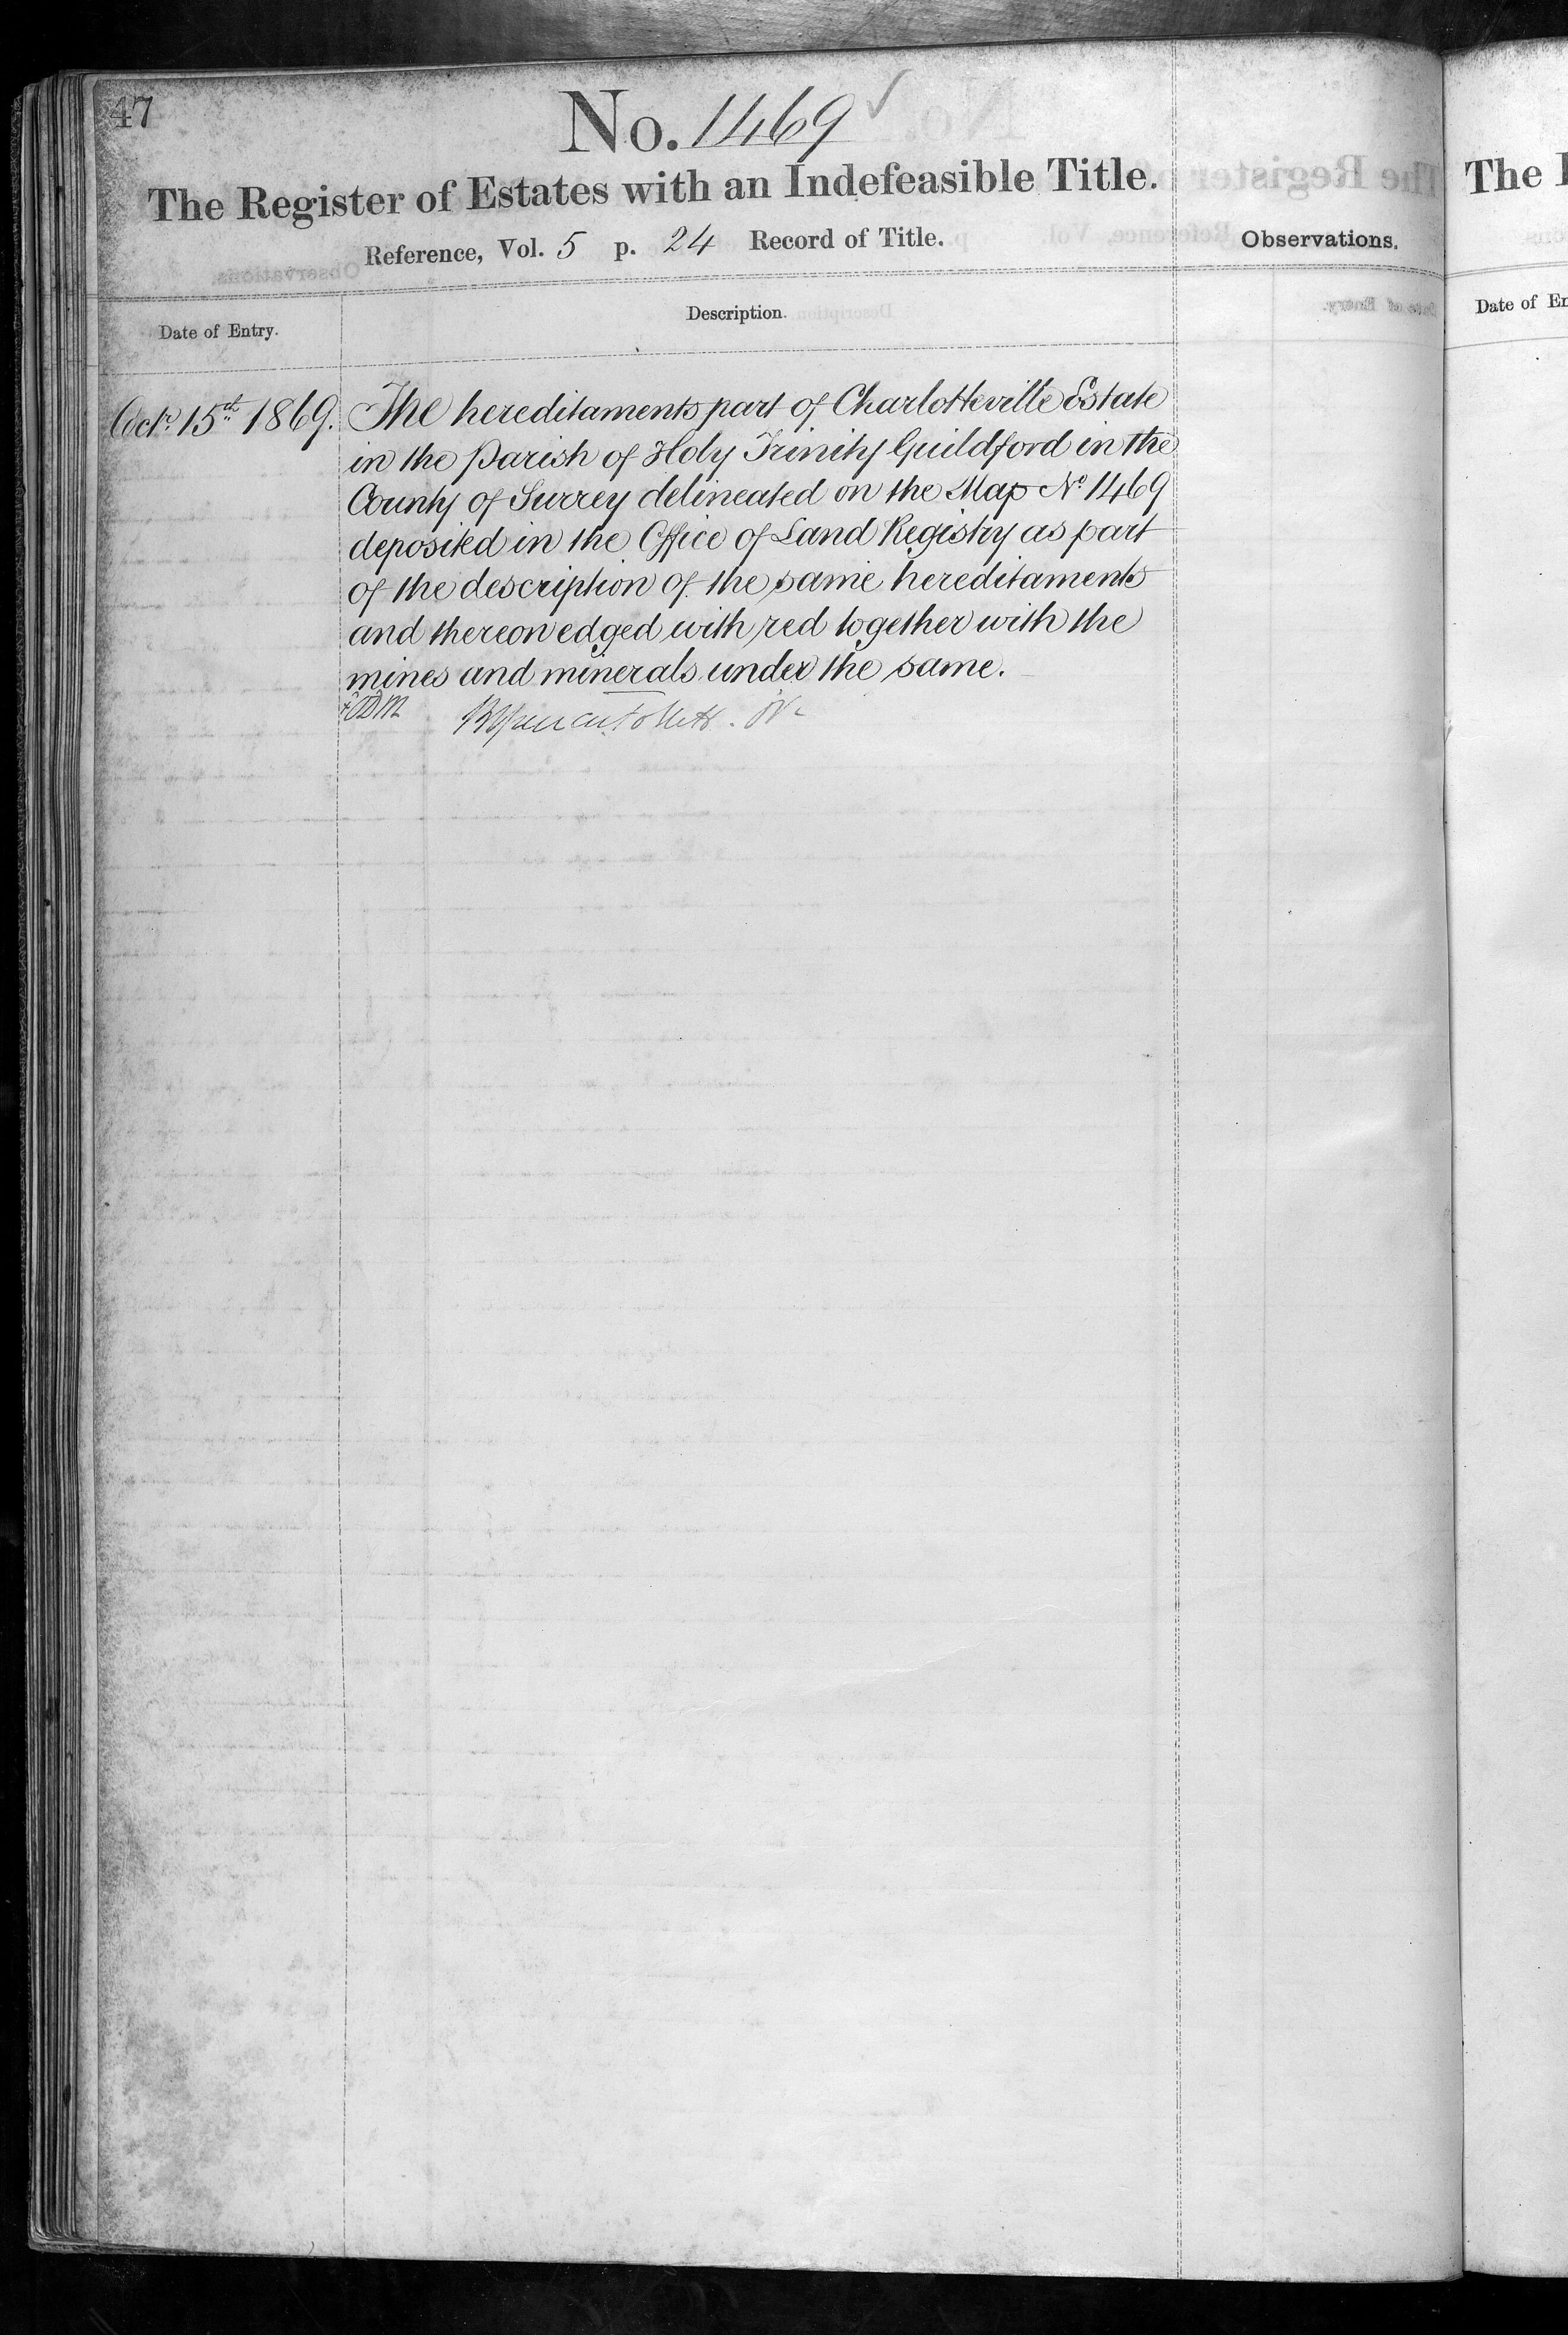 47
No. 1469
The Register of Estates with an Indefeasible Title.
Reference, Vol. 5 p. 24 Record of Title.
Observations.
Date of Entry.
Description.
Octr. 15th 1869. The hereditaments part of Charlotteville Estate
in the Parish of Holy Trinity Guildford in the
County of Surrey delineated on the Map No. 1469
deposited in the Office of Land Registry as part
of the description of the same hereditaments
and thereon edged with red together with the
mines and minerals under the same.
The
Date of